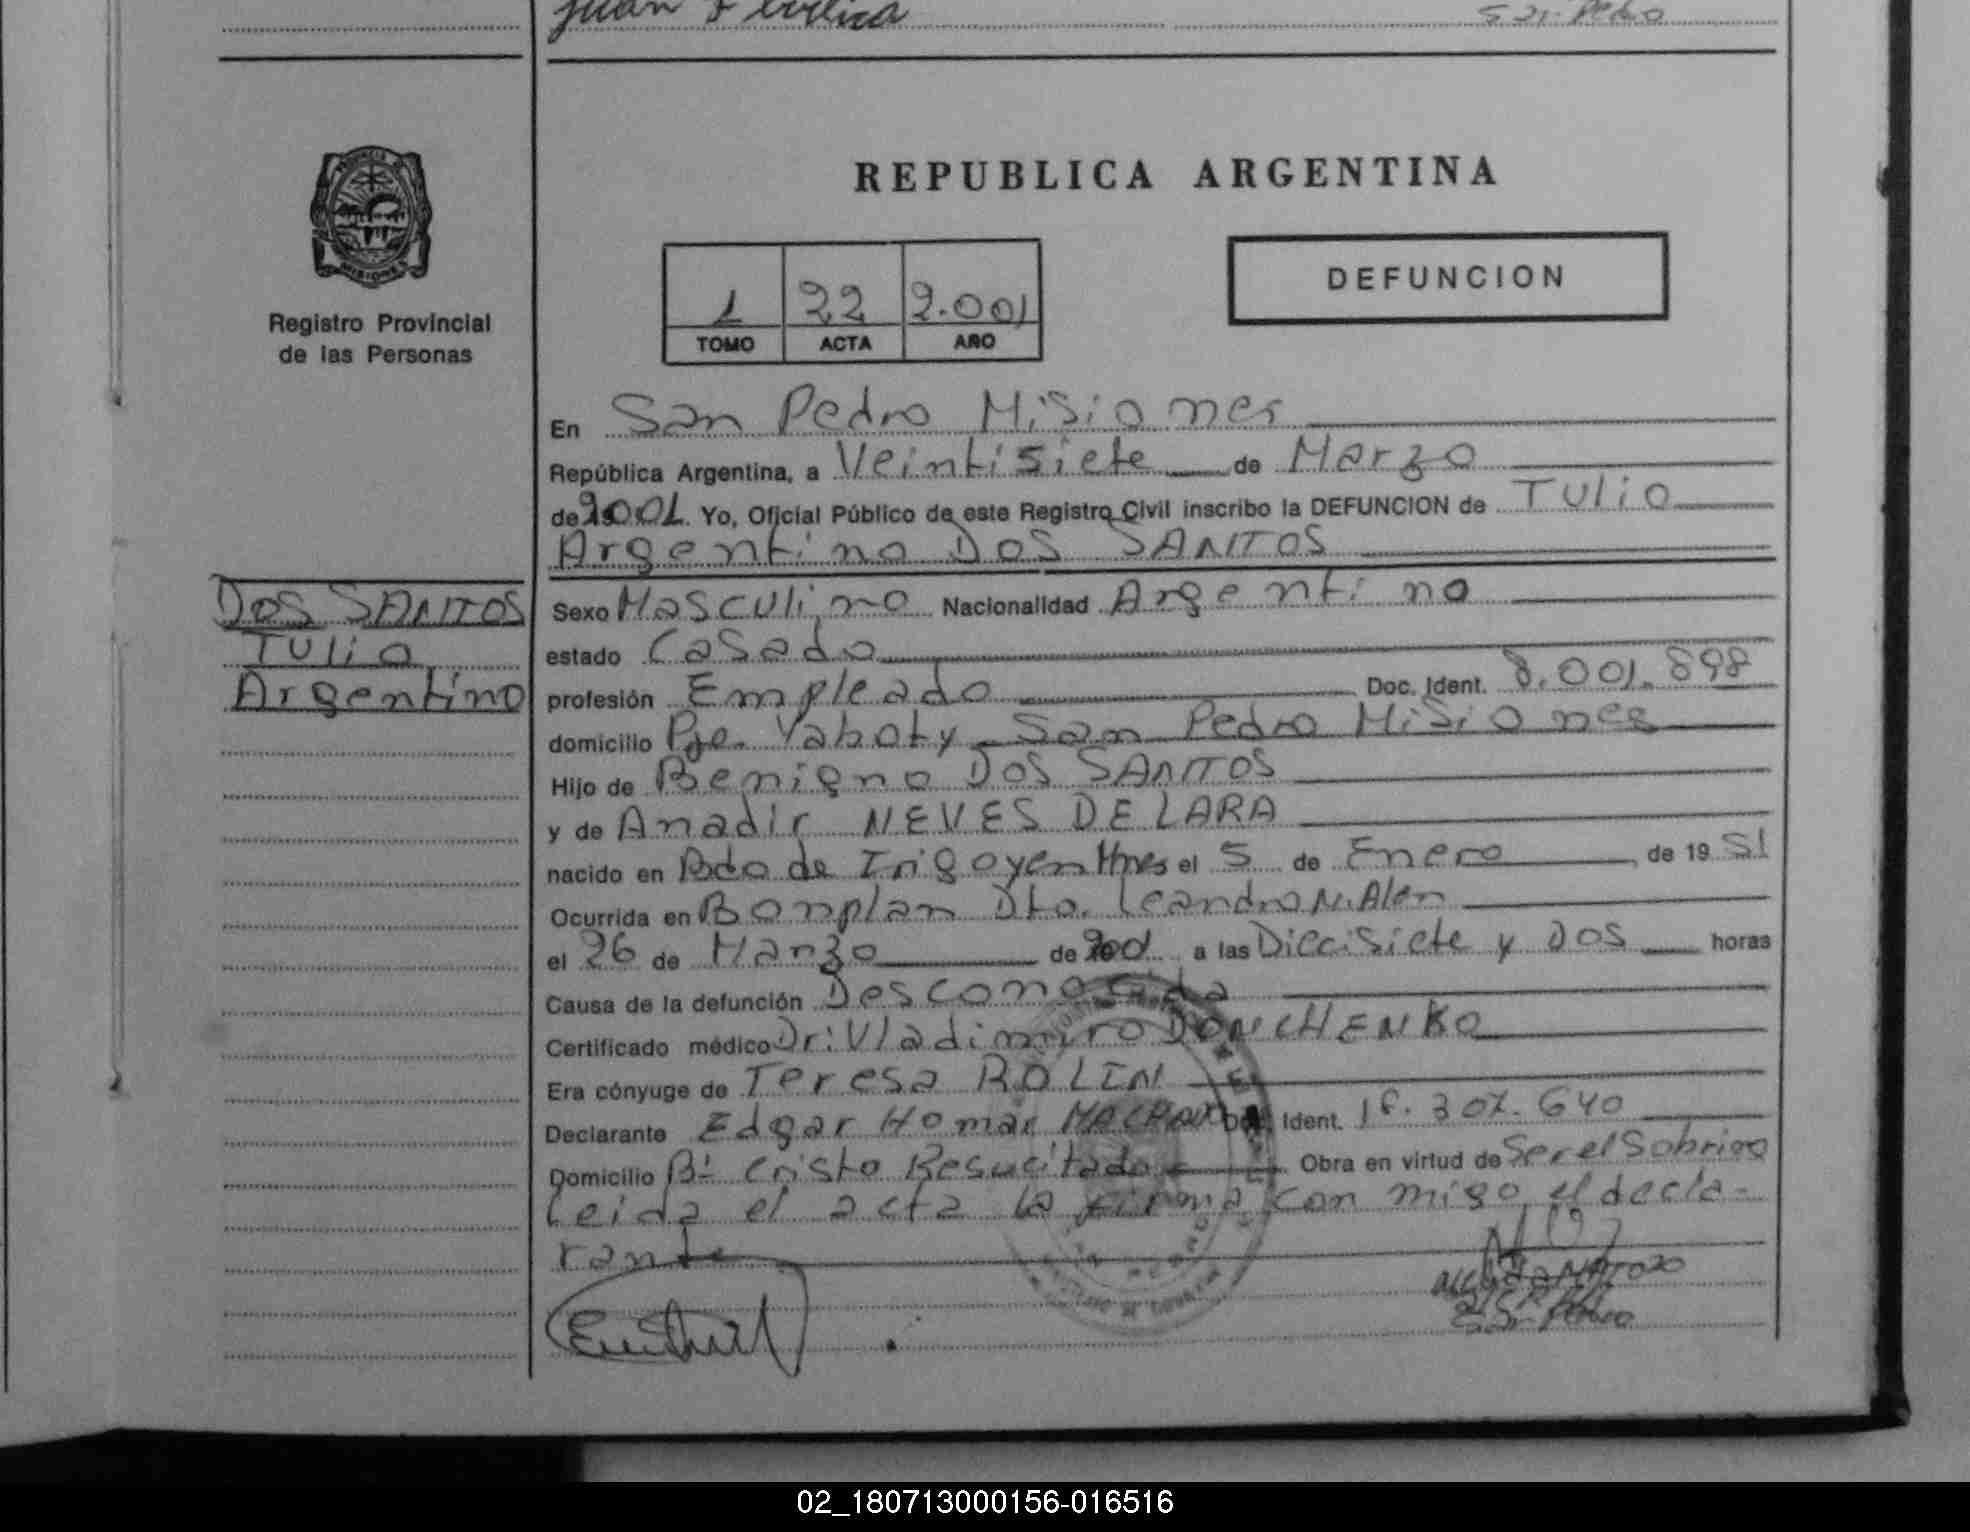 Juan
San Pedro
PROVINCIA DE
MISIONES
Registro Provincial
de las Personas
REPUBLICA ARGENTINA
DEFUNCION
1 22 2.001
TOMO ACTA AÑO
En San Pedro Misiones
República Argentina, a Veintisiete de Marzo
de 2001. Yo, Oficial Público de este Registro Civil inscribo la DEFUNCION de Tulio
Argentino DOS SANTOS
DOS SANTOS
Tulio
Argentino
Sexo Masculino Nacionalidad Argentino
estado Casado
profesión Empleado Doc. Ident. 8.001.898
domicilio Pje. Yaboty - San Pedro Misiones
Hijo de Benigno DOS SANTOS
y de Anadir NEVES DE LARA
nacido en Bdo de Irigoyen Mnes el 5 de Enero de 19 51
Ocurrida en Bonplan Dto. Leandro N. Alen
el 26 de Marzo de 2001 a las Diecisiete y Dos horas
Causa de la defunción Desconocida
Certificado médico Dr: Vladimiro DONCHENKO
Era cónyuge de Teresa ROLIN
Declarante Edgar Homar Doc. Ident. 18.307.640
Domicilio Bº Cristo Resucitado Obra en virtud de Ser el Sobrino
Leida el acta la firma con migo el decla-
rante
San Pedro
02_180713000156-016516